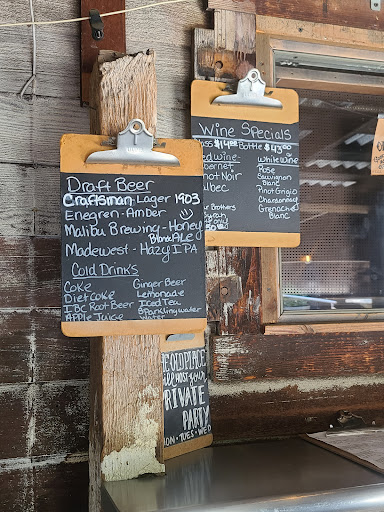 Draft Beer
Craftsman Lager 1903
Enegren - Amber
Malibu Brewing - Honey
Blonde Ale
Madewest - Hazy IPA
Cold Drinks
Coke
Diet Coke
IBC Root Beer
Apple Juice
Ginger Beer
Lemonade
Iced Tea
Sparkling water
Water
Wine Specials
$14.00 Bottle $43.00
White Wine
Rose
Sauvignon
Blanc
Pinot Grigio
Chardonnay
Grenache
Blanc
Noir
Brothers
only
PRIVATE
PARTY
TUES • WED